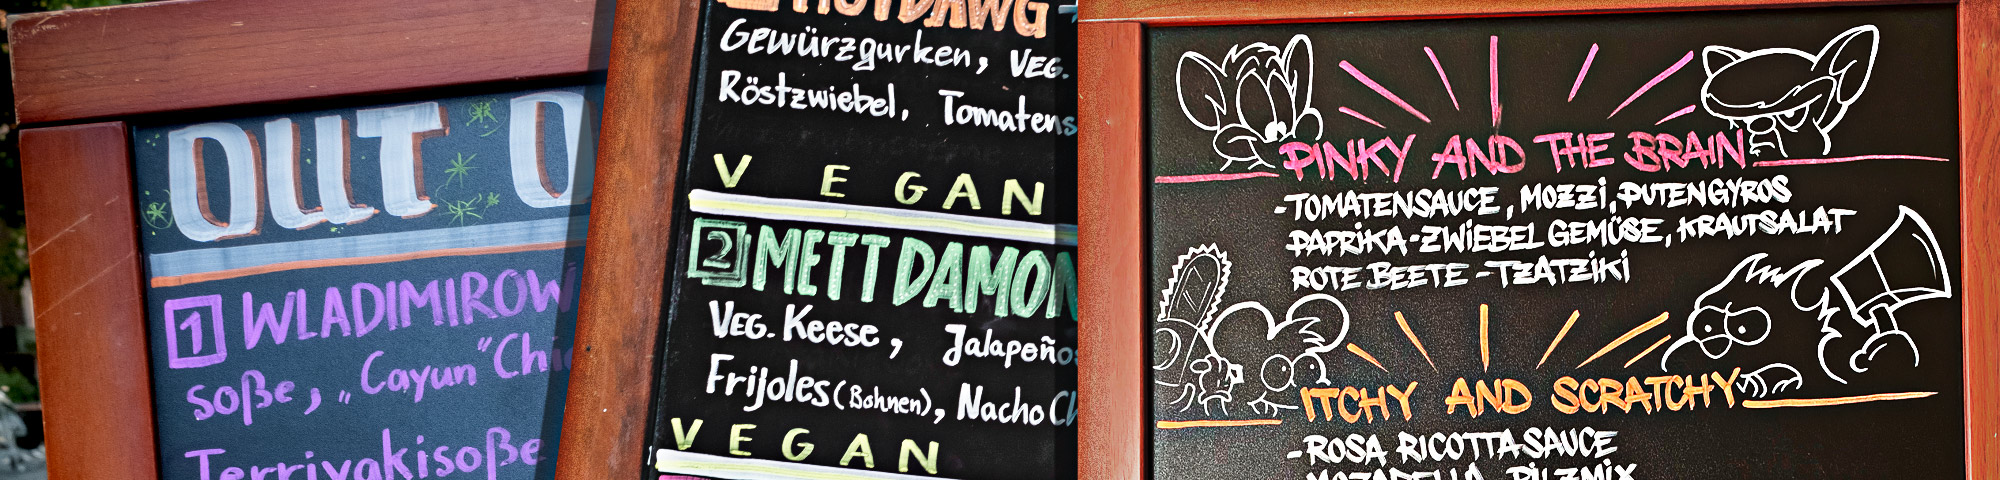 OUT O
1 WLADIMIROW
soße, „Cayun" Chi
Terriyakisoße
HOTDAWG
Gewürzgurken, VEG.
Röstzwiebel, Tomatens
VEGAN
2 METT DAMON
VEG. Keese, Jalapeño
Frijoles (Bohnen), Nacho Ch
VEGAN
PINKY AND THE BRAIN
-TOMATENSAUCE, MOZZI, PUTENGYROS
PAPRIKA-ZWIEBEL GEMÜSE, KRAUTSALAT
ROTE BEETE -TZATZIKI
ITCHY AND SCRATCHY
-ROSA RICOTTASAUCE
MOZARELLA, PILZMIX